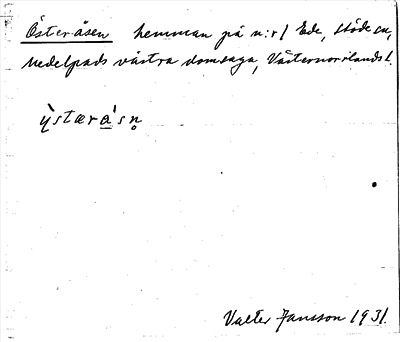 Österåsen hemman på n:r 1 Ede, Stöde sn,
Medelpads västra domsaga, Västernorrlands l.
ỳstæra̲'sn̥
Valter Jansson 1931.